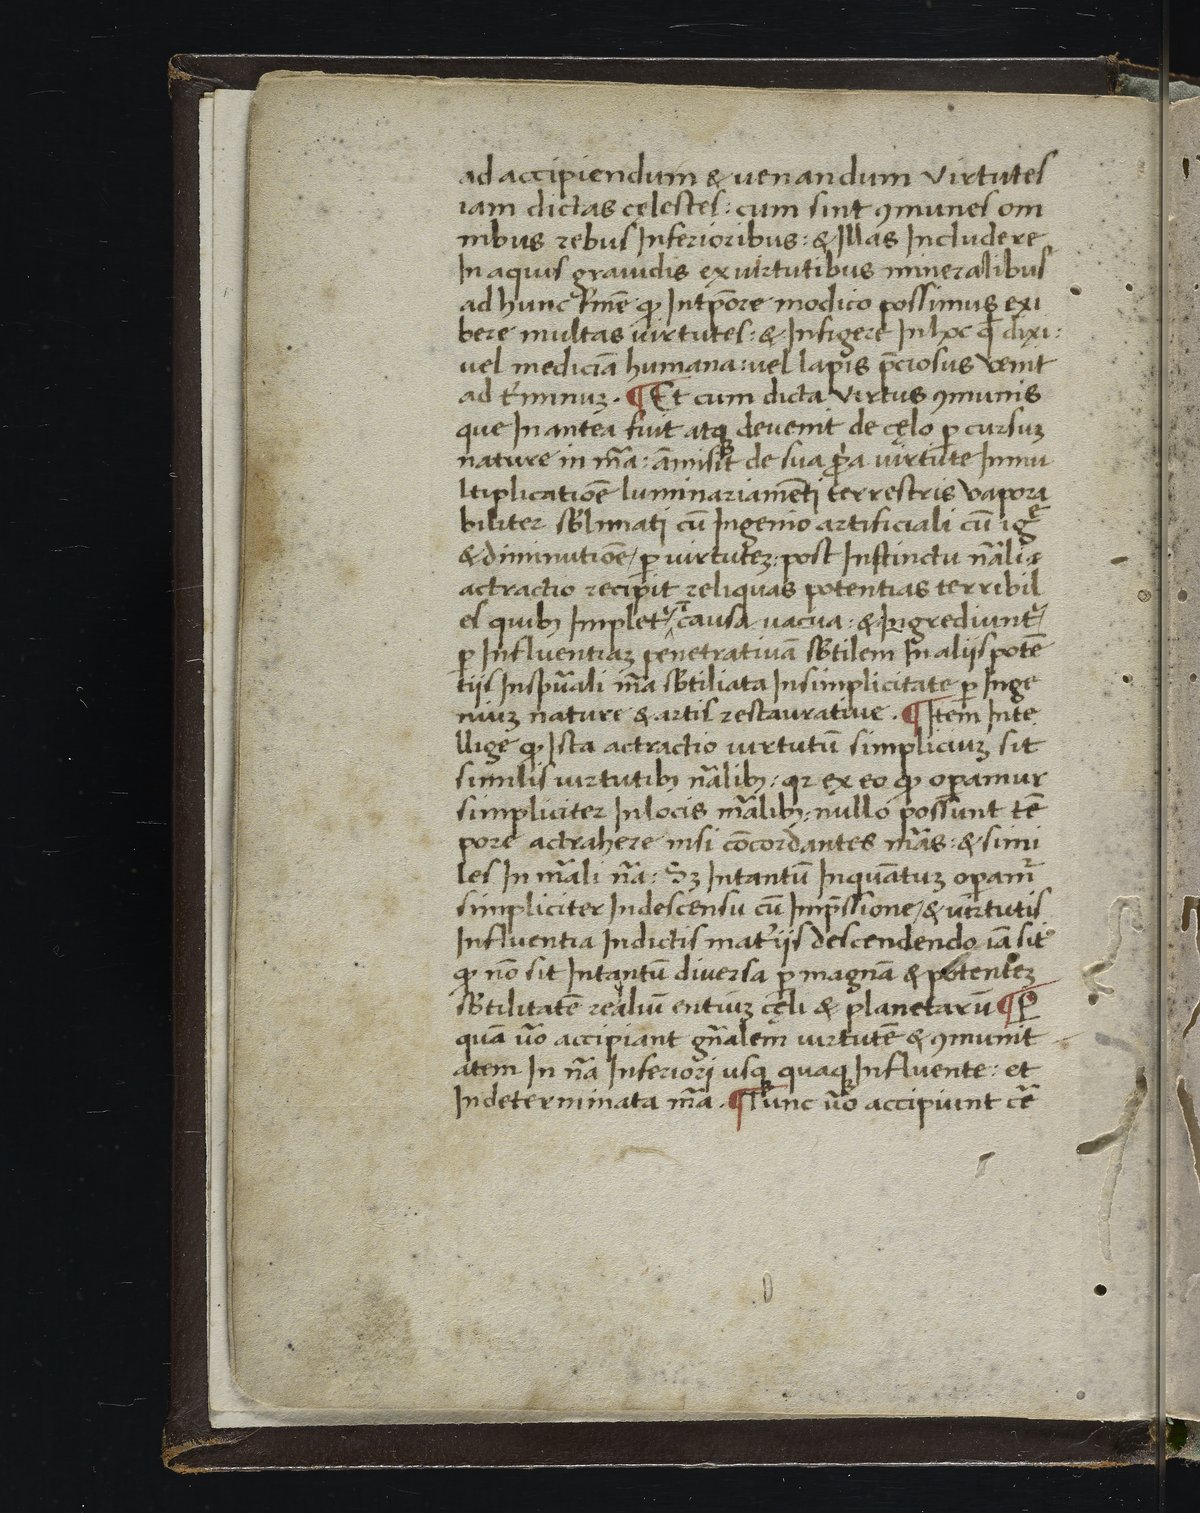 ad accipiendum & uenandum virtutes
iam dictas cęlestes: cum sint ꝯmunes om
nibus rebus Inferioribus: & Illas Includere
In aquis grauidis ex uirtutibus mineralibus
ad hunc finē ꝙ In tp̄ore modico possimus exi
bere multas uirtutes: & Infigere In hoc q̄ dixi:
uel mediciā humana: uel lapis p̄ciosus uenit
ad t̄minuȝ. ¶ Et cum dicta virtus ꝯmunis
que In antea fuit atqꝫ deuenit de cęlo ꝑ cursuȝ
nature in mā: āmisit de sua pͥa uirtute In mu
ltiplicatiōe luminariamēti terrestris vapora
biliter sb̄limati cū Ingenio artificiali cū igē
& diminutiōe/ ꝑ uirtuteȝ: post Instinctu nālis
actractio recipit reliquas potentias terribil
es quibꝫ Impletᷣ causa uacua: & Ingrediuntᷣ
ꝑ Influentiaȝ penetratiuā sb̄tilem In aliis potē
tiis In sp̄uali mā sb̄tiliata In simplicitate ꝑ Inge
niuȝ nature & artis restauratiue. ¶ Item Inte
llige ꝙ Ista actractio uirtutū simpliciuȝ sit
similis uirtutibꝫ nālibꝫ: qr ex eo ꝙ opamur
simpliciter In locis nālibꝫ: nullo possunt tē
pore actrahere nisi cōcordantes mās: & simi
les In māli nā: Sȝ Intantū Inquātuȝ opamᷣ
simpliciter In descensu cū Imp̄ssione/ & uirtutis
Influentia In dictis mat̄iis descendendo iā sit
ꝙ nō sit Intantū diuersa ꝑ magnā & potenteȝ
sb̄tilitatē realiū entiuȝ cęli & planetarū ¶ ꝑ
quā ūo accipiant gn̄alem uirtutē & ꝯmunit
atem In nā Inferiori usqꝫ quaqꝫ Influente: et
Indeterminata mā. ¶ Tunc ūo accipiunt cē